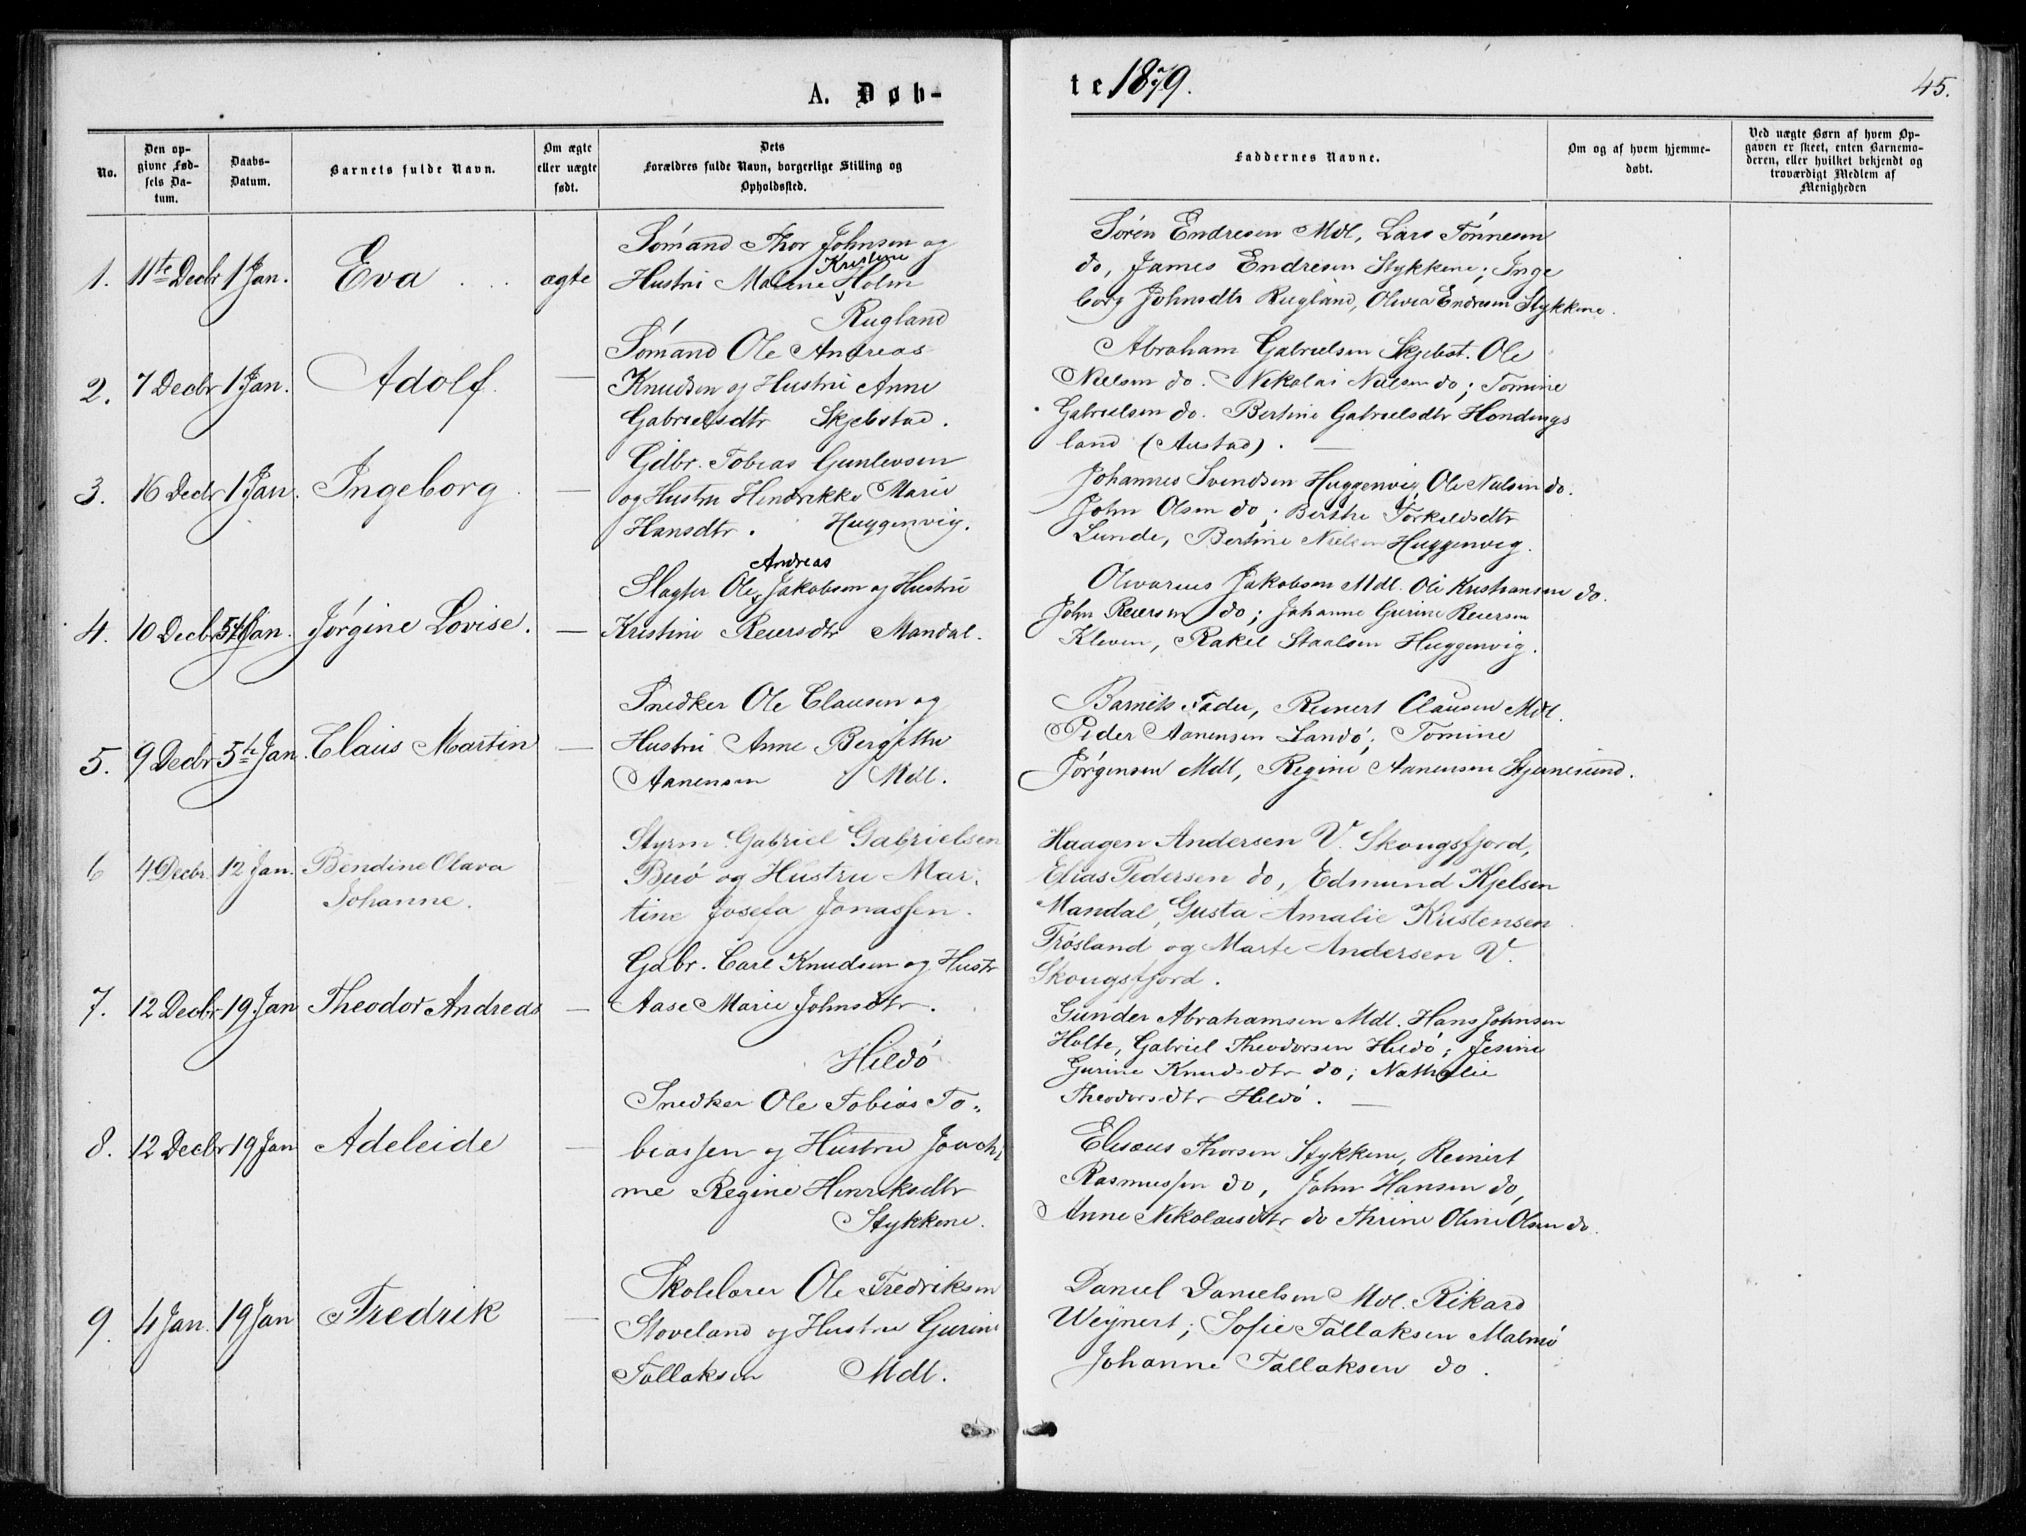 A. Døb-
te 1879.
45.
No.
Den op-
givne Fød-
sels Da-
tum.
Daabs-
Datum.
Barnets fulde Navn.
Om ægte
eller uægte
født.
Dets
Forældres fulde Navn, borgerlige Stilling og
Opholdssted.
Faddernes Navne.
Om og af hvem hjemme-
døbt.
Ved uægte Børn af hvem Op-
gaven er skeet, enten Barnemo-
deren, eller hvilket bekjendt og
troværdigt Medlem af
Menigheden
1. 11te Decbr 1 Jan. Eva ægte
Sømand Thor Johnsen og
Kristine
Hustru Malene Holm
Rugland
Søren Endresen Mdl, Lars Tönnesen
do, James Endresen Stykkene; Inge
borg Johnsdtr Rugland, Olivia Endresen Stykkene.
2. 7 Decbr 1 Jan. Adolf. —
Sømand Ole Andreas
Knudsen og Hustru Anne
Gabrielsdtr Skjebstad.
Abraham Gabrielsen Skjebst. Ole
Nielsen do. Nikolai Nielsen do; Tomine
Gabrielsen do. Bertine Gabrielsdtr Hondings
land (Austad). —
3. 16 Decbr 1 Jan. Ingeborg —
Gdbr. Tobias Gunlevsen
og Hustru Hendrikke Marie
Hansdtr. Huggenvig.
Johannes Svendsen Huggenvig, Ole Nielsen do.
John Olsen do; Berthe Torkildsdtr
Lunde, Bertine Nielsen Huggenvig.
4. 10 Decbr 5te Jan. Jørgine Lovise. —
Andreas
Slagter Ole Jakobsen og Hustru
Kristine Reiersdtr Mandal.
Olivarius Jakobsen Mdl. Ole Kristiansen do.
John Reiersen do; Johanne Gurine Reiersen
Kleven, Rakel Staalsen Huggenvig.
5. 9 Decbr 5te Jan. Claus Martin —
Snedker Ole Clausen og
Hustru Anne Bergithe
Aanensen Mdl.
Barnets Fader, Reinert Clausen Mdl.
Peder Aanensen Landö; Tomine
Jørgensen Mdl, Regine Aanensen Stjernesund.
6 4 Decbr. 12 Jan. Bendine Olava
Johanne. —
Styrm. Gabriel Gabrielsen
Buö og Hustru Mar-
tine Josefa Jonassen.
Haagen Andersen V. Skougsfjord,
Elias Pedersen do, Edmund Kjelsen
Mandal, Gusta Amalie Kristensen
Trøsland og Marte Andersen V.
Skougsfjord.
7. 12 Decbr 19 Jan Theodor Andreas —
Gdbr. Carl Knudsen og Hustr
Aase Marie Johnsdtr.
Hildö
Gunder Abrahamsen Mdl. Hans Johnsen
Holte, Gabriel Theodorsen Hildö; Jesine
Gurine Knudsdtr do; Nathalie
Theodorsdtr Hildö. —
8. 12 Decbr 19 Jan Adeleide —
Snedker Ole Tobias To-
biassen og Hustru Joachi
me Regine Henriksdtr
Stykkene.
Elisæus Thorsen Stykkene, Reinert
Rasmussen do, John Hansen do,
Anne Nikolaisdtr do Thrine Oline Olsen do.
9. 4 Jan. 19 Jan Fredrik —
Skolelærer Ole Fredriksen
Stoveland og Hustru Gurine
Tallaksen Mdl.
Daniel Danielsen Mdl. Rikard
Weynert; Sofie Tallaksen Malmö
Johanne Tallaksen do.